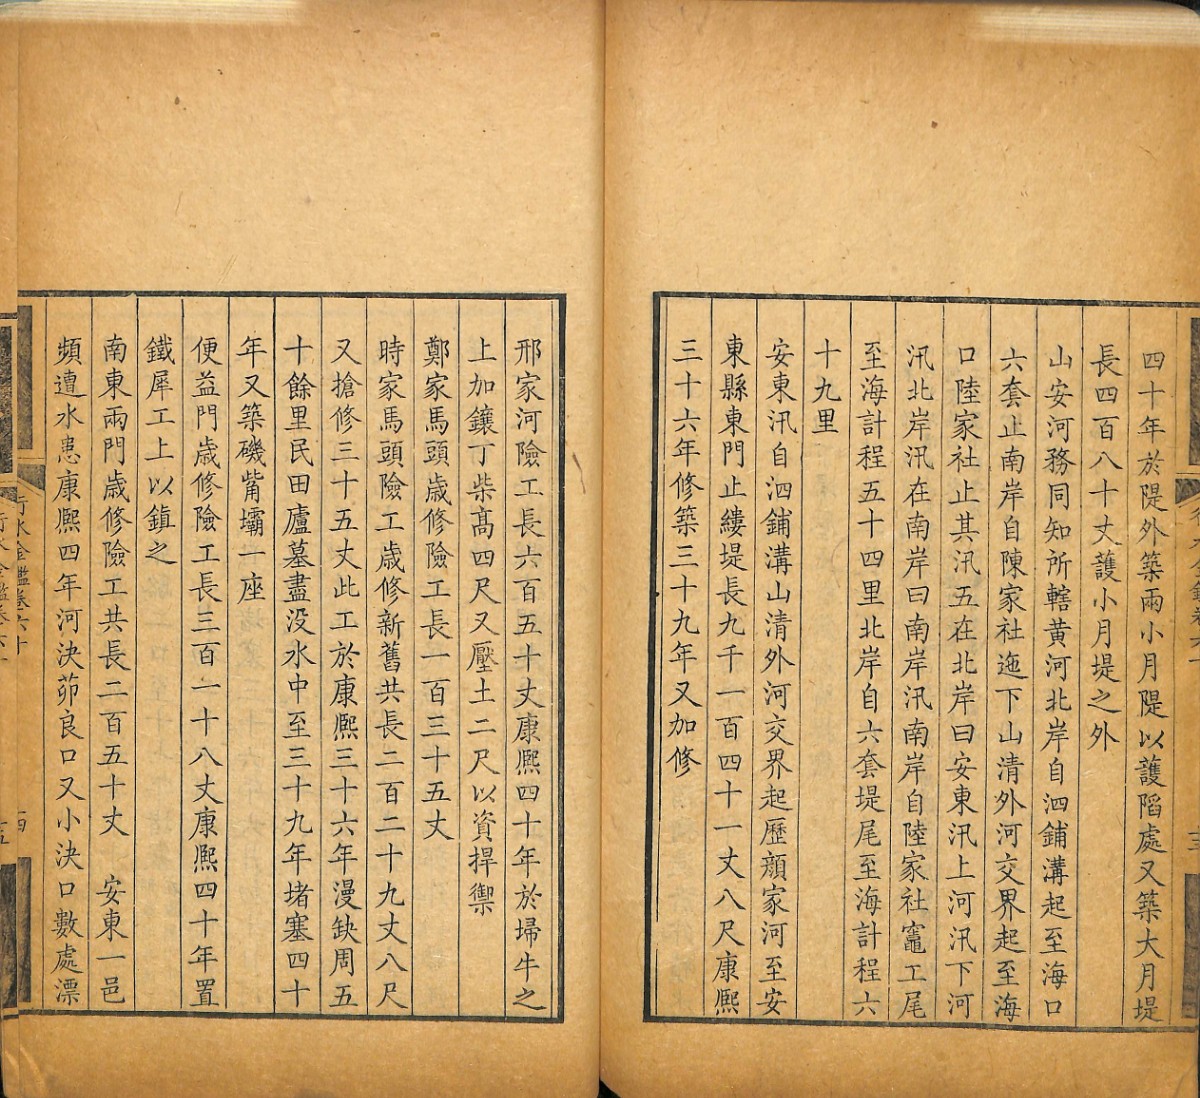 四十年於隄外築兩小月隄以護䧟處又築大月堤
長四百八十丈護小月堤之外
山安河務同知所轄黄河北岸自泗鋪溝起至海口
六套止南岸自陳家社迤下山清外河交界起至海
口陸家社止其汛五在北岸曰安東汛上河汛下河
汛北岸汛在南岸曰南岸汛南岸自陸家社竈工尾
至海計程五十四里北岸自六套堤尾至海計程六
十九里
安東汛自泗鋪溝山清外河交界起歷顔家河至安
東縣東門止縷堤長九千一百四十一丈八尺康熈
三十六年修築三十九年又加修
邢家河險工長六百五十丈康熈四十年於埽牛之
上加鑲丁柴髙四尺又壓土二尺以資捍禦
鄭家馬頭歲修險工長一百三十五丈
時家馬頭險工歲修新舊共長二百二十九丈八尺
又搶修三十五丈此工於康熈三十六年漫缺周五
十餘里民田廬墓盡没水中至三十九年堵塞四十
年又築磯觜壩一座
便益門歲修險工長三百一十八丈康熈四十年置
鐵犀工上以鎮之
南東兩門歲修險工共長二百五十丈 安東一邑
頻遭水患康熈四年河決茆良口又小決口數處漂
行水金鑑卷六十